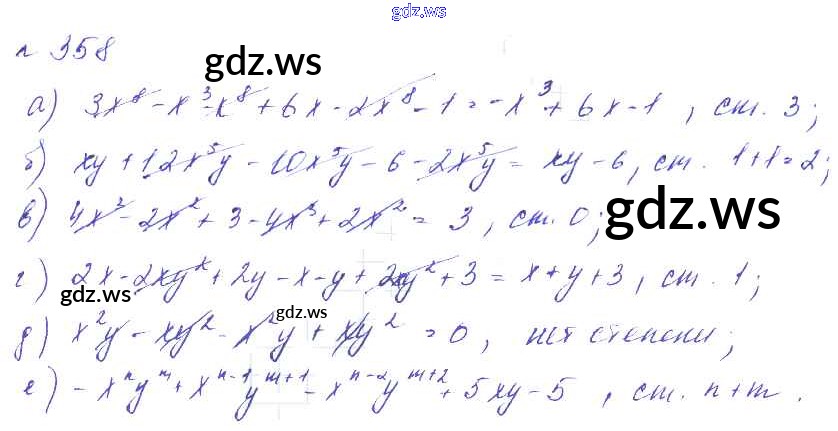 gdz.ws
n 358
gdz.ws
а) 3x⁸ - x³ - x⁸ + 6x - 2x⁸ - 1 = -x³ + 6x - 1 , ст. 3;
б) xy + 12x⁵y - 10x⁵y - 6 - 2x⁵y = xy - 6, ст. 1+1=2;
в) 4x³ - 2x² + 3 - 4x³ + 2x² = 3 , ст. 0;
gdz.ws
г) 2x - 2xy² + 2y - x - y + 2xy² + 3 = x + y + 3 , ст. 1;
gdz.ws
gdz.ws
д) x²y - xy² - x²y + xy² = 0 , нет степени;
е) -xⁿyᵐ + xⁿ⁻¹yᵐ⁺¹ - xⁿ⁻²yᵐ⁺² + 5xy - 5 , ст. n+m .